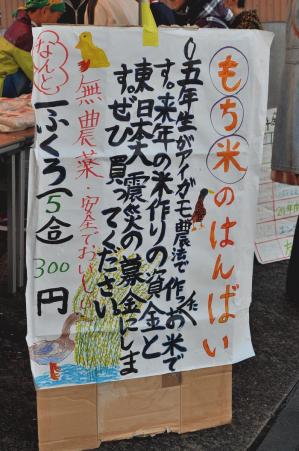 もち米のはんばい
○五年生がアイガモ農法で作ったお米で
す。来年の米作りの資金と
東日本大震災の募金にしま
す。ぜひ買ってください
無農薬・安全でおいしい
なんと
一ふくろ(5合)300円